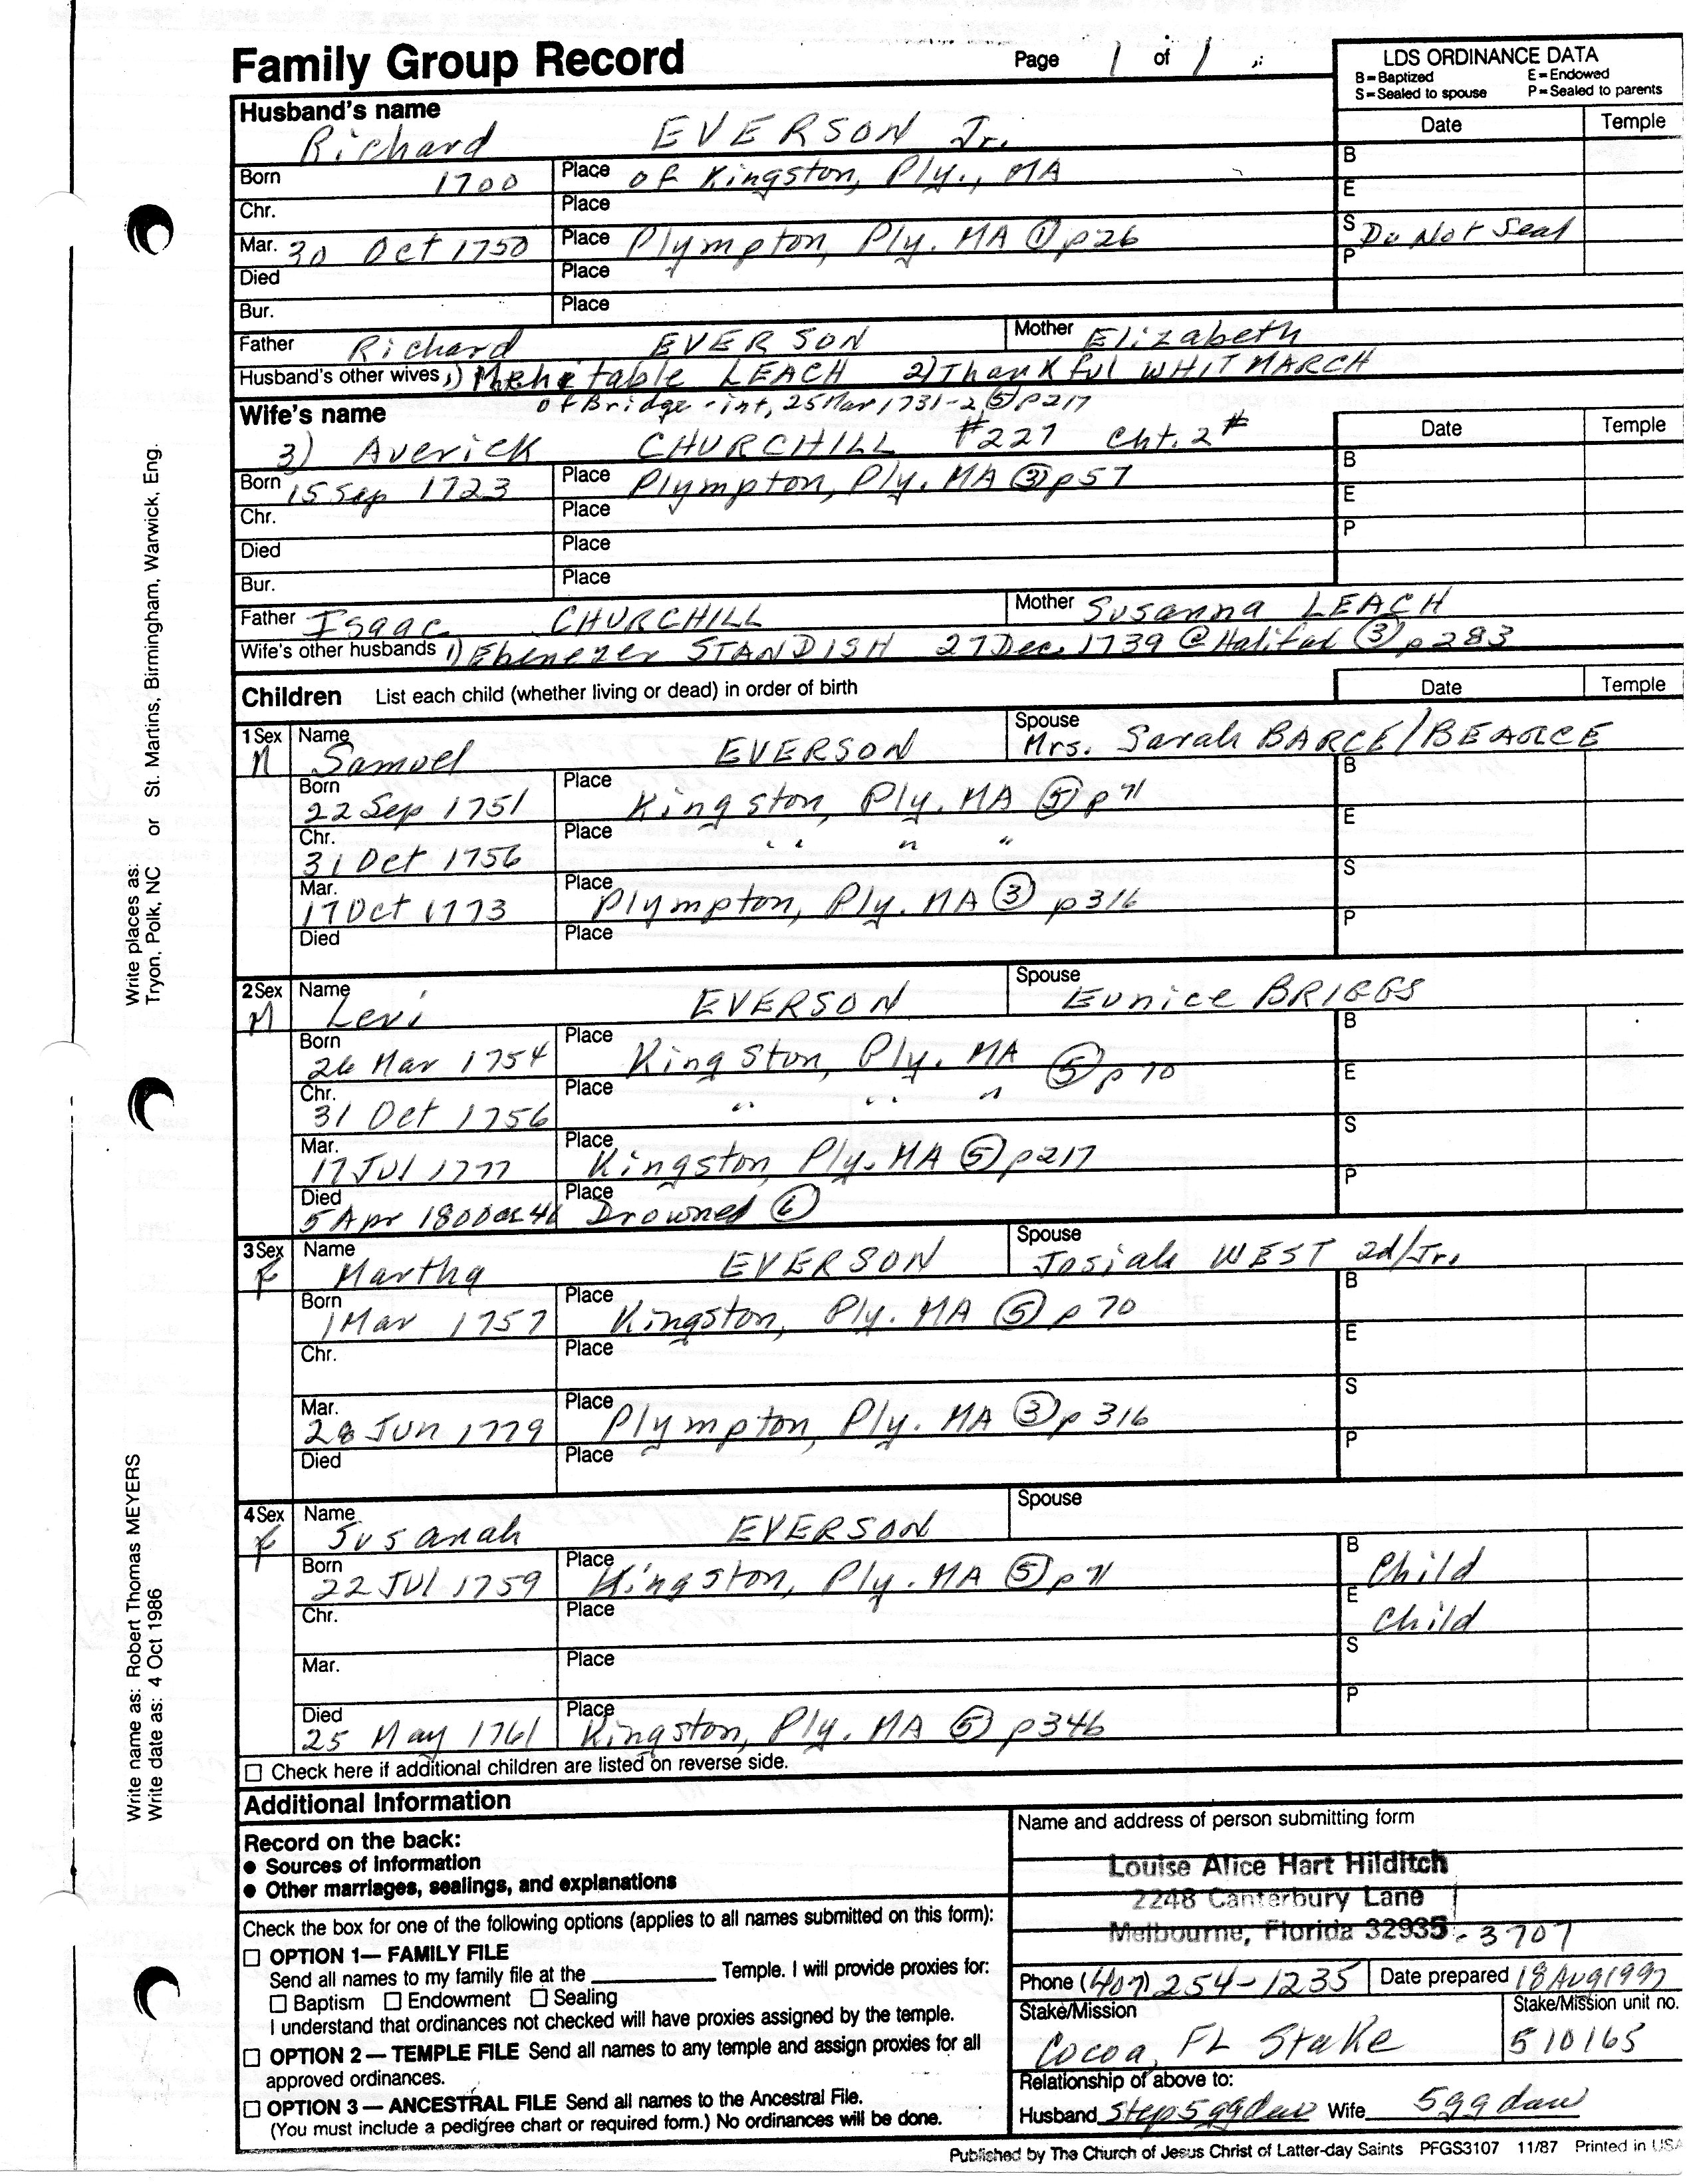 Family Group Record Page 1 of 1
LDS ORDINANCE DATA
B=Baptized E=Endowed
S=Sealed to spouse P=Sealed to parents
Date Temple
Husband's name
Richard EVERSON Jr.
Born 1700 Place of Kingston, Ply., MA B
Chr. Place E
Mar. 30 Oct 1750 Place Plympton, Ply. MA ① p26 S Do Not Seal
Died Place P
Bur. Place
Father Richard EVERSON Mother Elizabeth
Husband's other wives 1) Mehitable LEACH 2) Thankful WHITMARCH
of Bridge - int, 25 Mar 1731-2 ⑤ p217
Wife's name Date Temple
3) Averick CHURCHILL #227 Cht. 2#
Born 15 Sep 1723 Place Plympton, Ply. MA ③ p57 B
Chr. Place E
Died Place P
Bur. Place
Father Isaac CHURCHILL Mother Susanna LEACH
Wife's other husbands 1) Ebenezer STANDISH 27 Dec. 1739 @ Halifax ③ p283
Children List each child (whether living or dead) in order of birth Date Temple
1 Sex Name Spouse
M Samuel EVERSON Mrs. Sarah BARCE/BEARCE
Born Place B
22 Sep 1751 Kingston, Ply. MA ⑤ p71
Chr. Place E
31 Oct 1756 " " "
Mar. Place S
17 Oct 1773 Plympton, Ply. MA ③ p316
Died Place P
2 Sex Name Spouse
M Levi EVERSON Eunice BRIGGS
Born Place B
26 Mar 1754 Kingston, Ply. MA ⑤ p70
Chr. Place E
31 Oct 1756 " " "
Mar. Place S
17 Jul 1777 Kingston, Ply. MA ⑤ p217
Died Place P
5 Apr 1800 ae 46 Drowned ⑥
3 Sex Name Spouse
F Martha EVERSON Josiah WEST 2d/Jr.
Born Place B
1 Mar 1757 Kingston, Ply. MA ⑤ p70
Chr. Place E
Mar. Place S
28 Jun 1779 Plympton, Ply. MA ③ p316
Died Place P
4 Sex Name Spouse
F Susanah EVERSON
Born Place B Child
22 Jul 1759 Kingston, Ply. MA ⑤ p71
Chr. Place E Child
Mar. Place S
Died Place P
25 May 1761 Kingston, Ply. MA ⑤ p346
☐ Check here if additional children are listed on reverse side.
Additional Information
Record on the back:
● Sources of information
● Other marriages, sealings, and explanations
Check the box for one of the following options (applies to all names submitted on this form):
☐ OPTION 1— FAMILY FILE
Send all names to my family file at the ____________ Temple. I will provide proxies for:
☐ Baptism ☐ Endowment ☐ Sealing
I understand that ordinances not checked will have proxies assigned by the temple.
☐ OPTION 2 — TEMPLE FILE Send all names to any temple and assign proxies for all
approved ordinances.
☐ OPTION 3 — ANCESTRAL FILE Send all names to the Ancestral File.
(You must include a pedigree chart or required form.) No ordinances will be done.
Name and address of person submitting form
Louise Alice Hart Hilditch
2248 Canterbury Lane
Melbourne, Florida 32935-3707
Phone (407) 254-1235 Date prepared 18 Aug 1992
Stake/Mission Stake/Mission unit no.
Cocoa, FL Stake 510165
Relationship of above to:
Husband Step 5ggdau Wife 5gg dau
Published by The Church of Jesus Christ of Latter-day Saints PFGS3107 11/87 Printed in USA
Write places as: Tryon, Polk, NC or St. Martins, Birmingham, Warwick, Eng.
Write name as: Robert Thomas MEYERS
Write date as: 4 Oct 1986